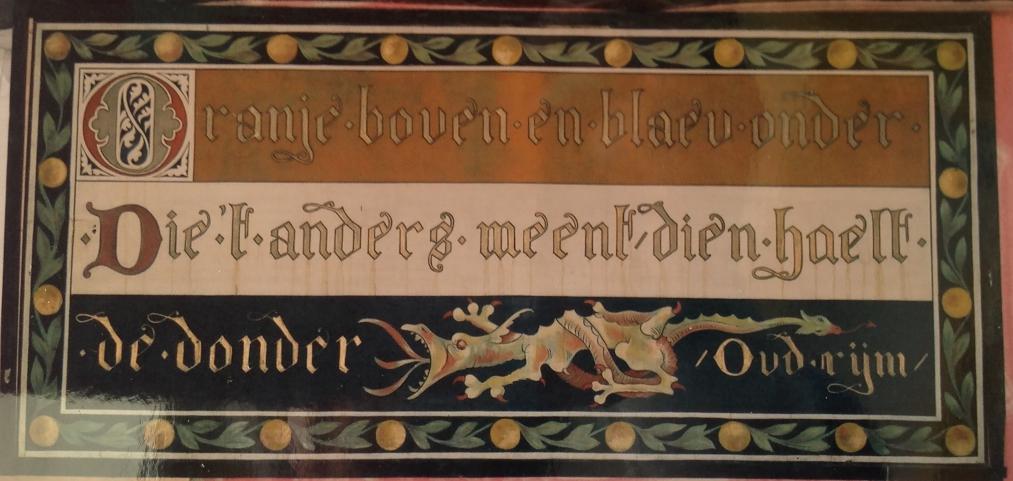 Oranje·boven·en·blaev·onder·
·Die't·anders·meent/dien·haelt·
·de·donder /Oud·rijm/